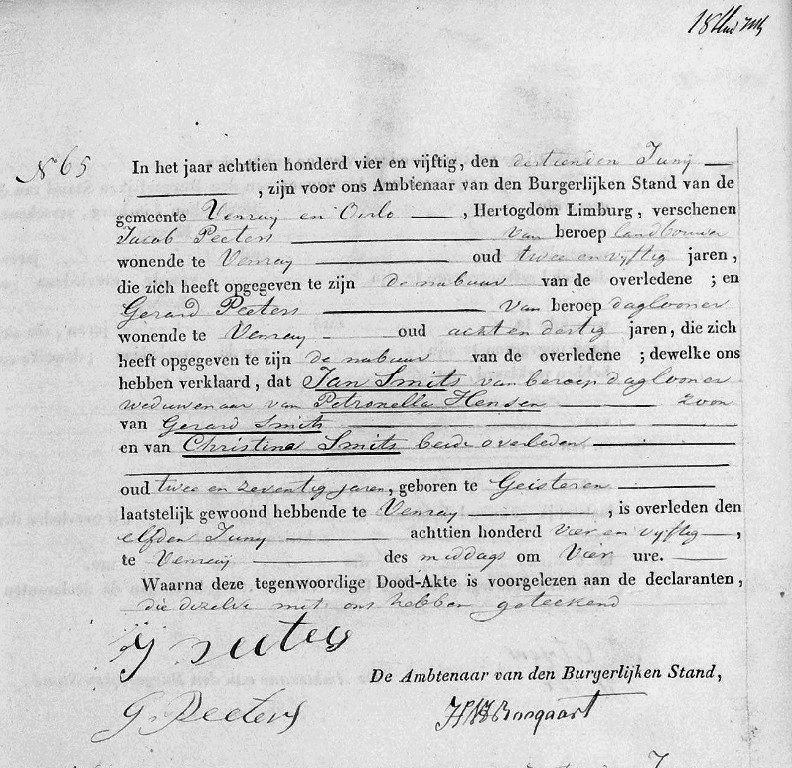 N 65
In het jaar achttien honderd vier en vijftig, den dertienden Junij
, zijn voor ons Ambtenaar van den Burgerlijken Stand van de
gemeente Venray en Oirlo , Hertogdom Limburg, verschenen
Jacob Peeters van beroep landbouwer
wonende te Venray oud twee en vyftig jaren,
die zich heeft opgegeven te zijn de nabuur van de overledene ; en
Gerard Peeters van beroep daglooner
wonende te Venray oud acht en dertig jaren, die zich
heeft opgegeven te zijn de nabuur van de overledene ; dewelke ons
hebben verklaard, dat Jan Smits van beroep daglooner
weduwenaar van Petronella Hensen zoon
van Gerard Smits
en van Christina Smits beide overleden
oud twee en zeventig jaren, geboren te Geisteren
laatstelijk gewoond hebbende te Venray , is overleden den
elfden Juny achttien honderd vier en vyftig ,
te Venray des middags om vier ure.
Waarna deze tegenwoordige Dood-Akte is voorgelezen aan de declaranten,
die dezelve met ons hebben geteekend
J Peeters
De Ambtenaar van den Burgerlijken Stand,
G. Peeters